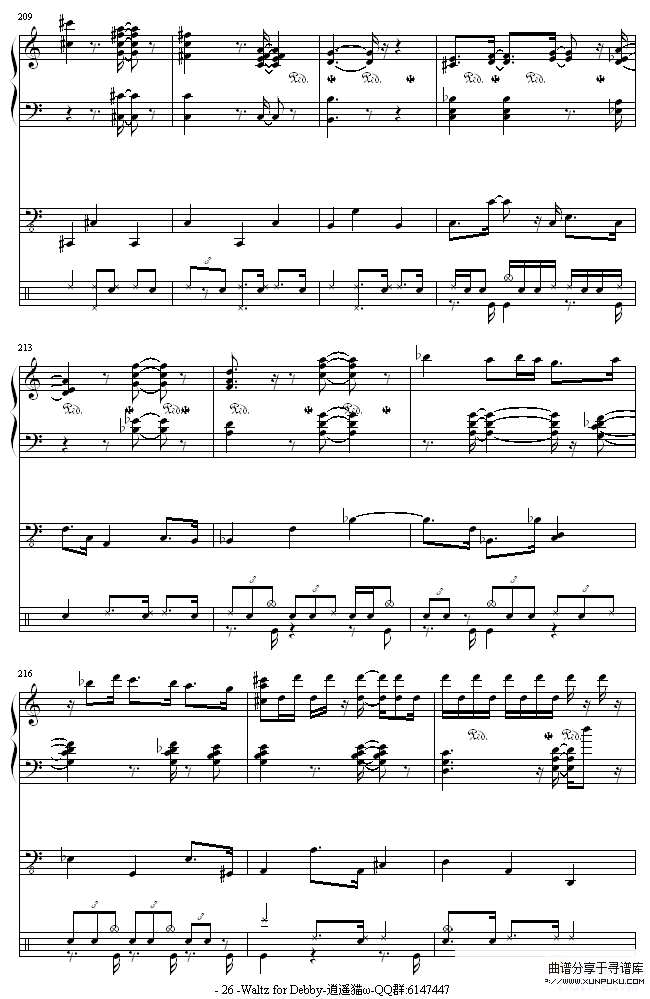 209
213
216
曲谱分享于寻谱库
WWW.XUNPUKU.COM
- 26 -Waltz for Debby-逍遥猫ω-QQ群:6147447